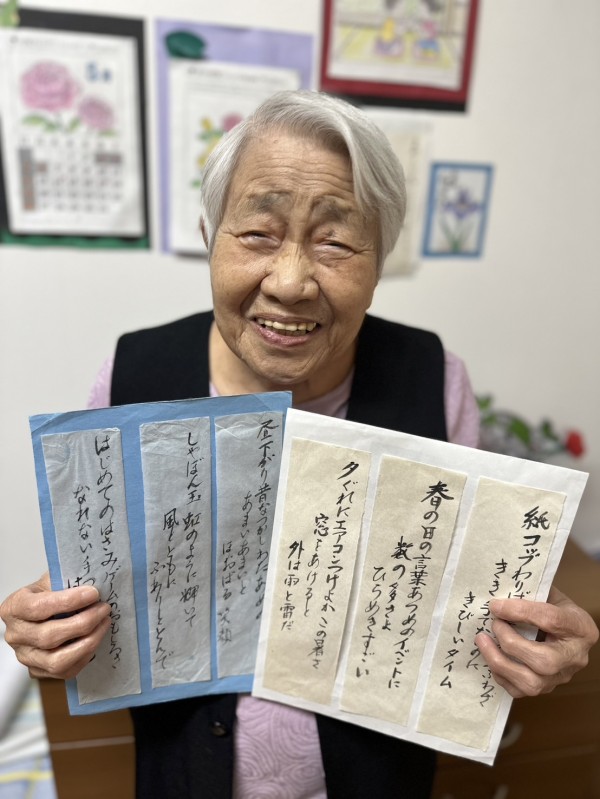 紙コップわり
きびしいタイム
春の日の言葉あつめのイベントに
数の多さよ
ひらめきすごい
夕ぐれにエアコンつけよかこの暑さ
窓をあけると
外は雨と雷だ
昼下がり昔なつかしわたあめの
あまいあまいと
ほおばる笑顔
しゃぼん玉虹のように輝いて
風とともに
ふありととんで
はじめてのはさみゲームのおもしろさ
なれない手つ
は
5